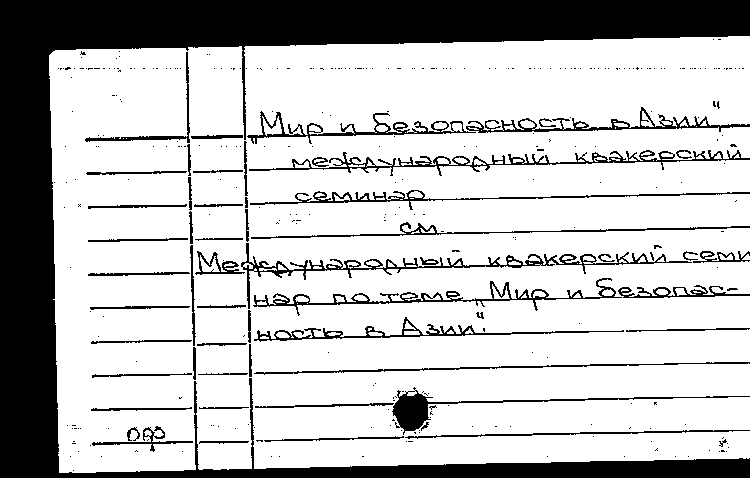 „Мир и безопасность в Азии“,
международный квакерский
семинар
см
Международный квакерский семи
нар по теме „Мир и безопас-
ность в Азии“.